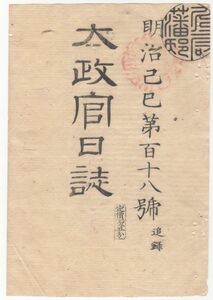 明治己巳第百十八號 追錄
太政官日誌